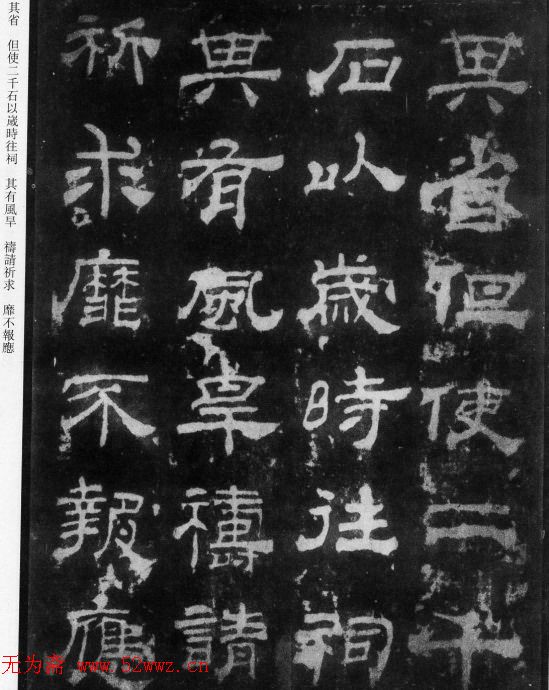 其省但使二千
石以歲時往祠
其有風旱禱請
祈求靡不報應
其省　但使二千石以歲時往祠　其有風旱　禱請祈求　靡不報應
无为斋 www.52wwz.cn